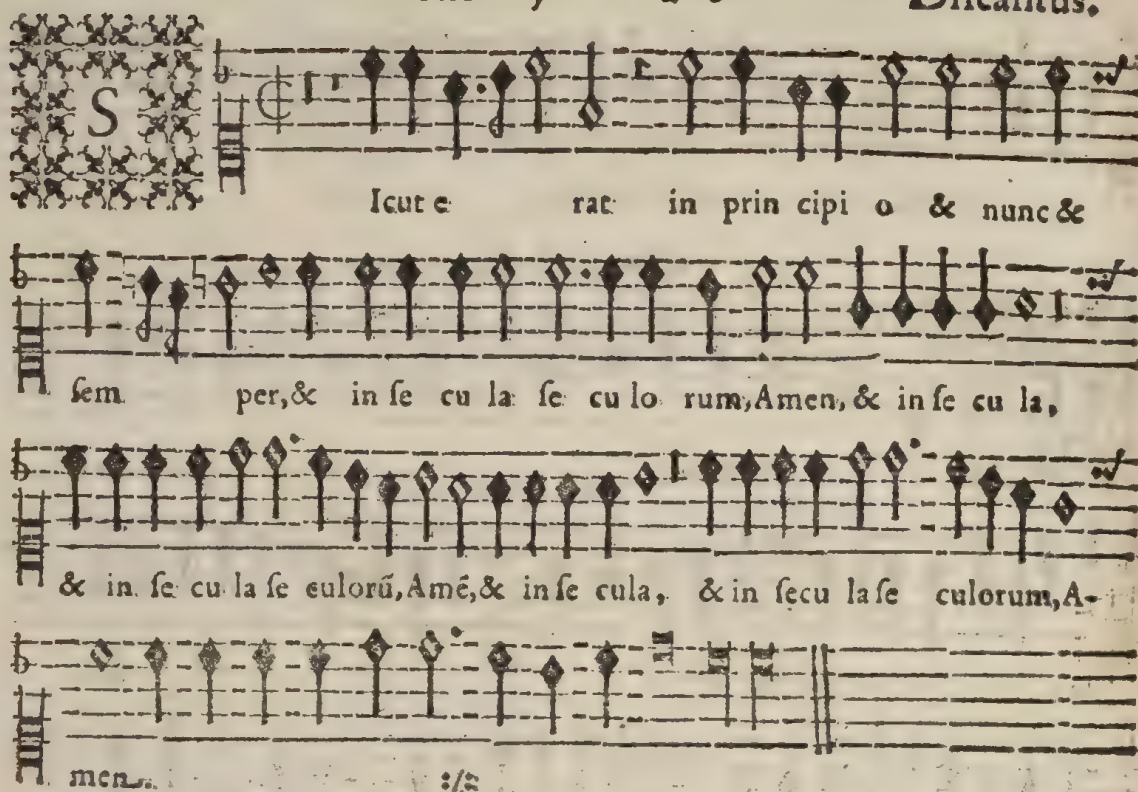 Discantus.
S
Icut e rat in prin cipi o & nunc &
sem per, & in se cu la se cu lo rum, Amen, & in se cu la,
& in se cu la se culorũ, Amẽ, & in se cula, & in secu la se culorum, A-
men. :/: